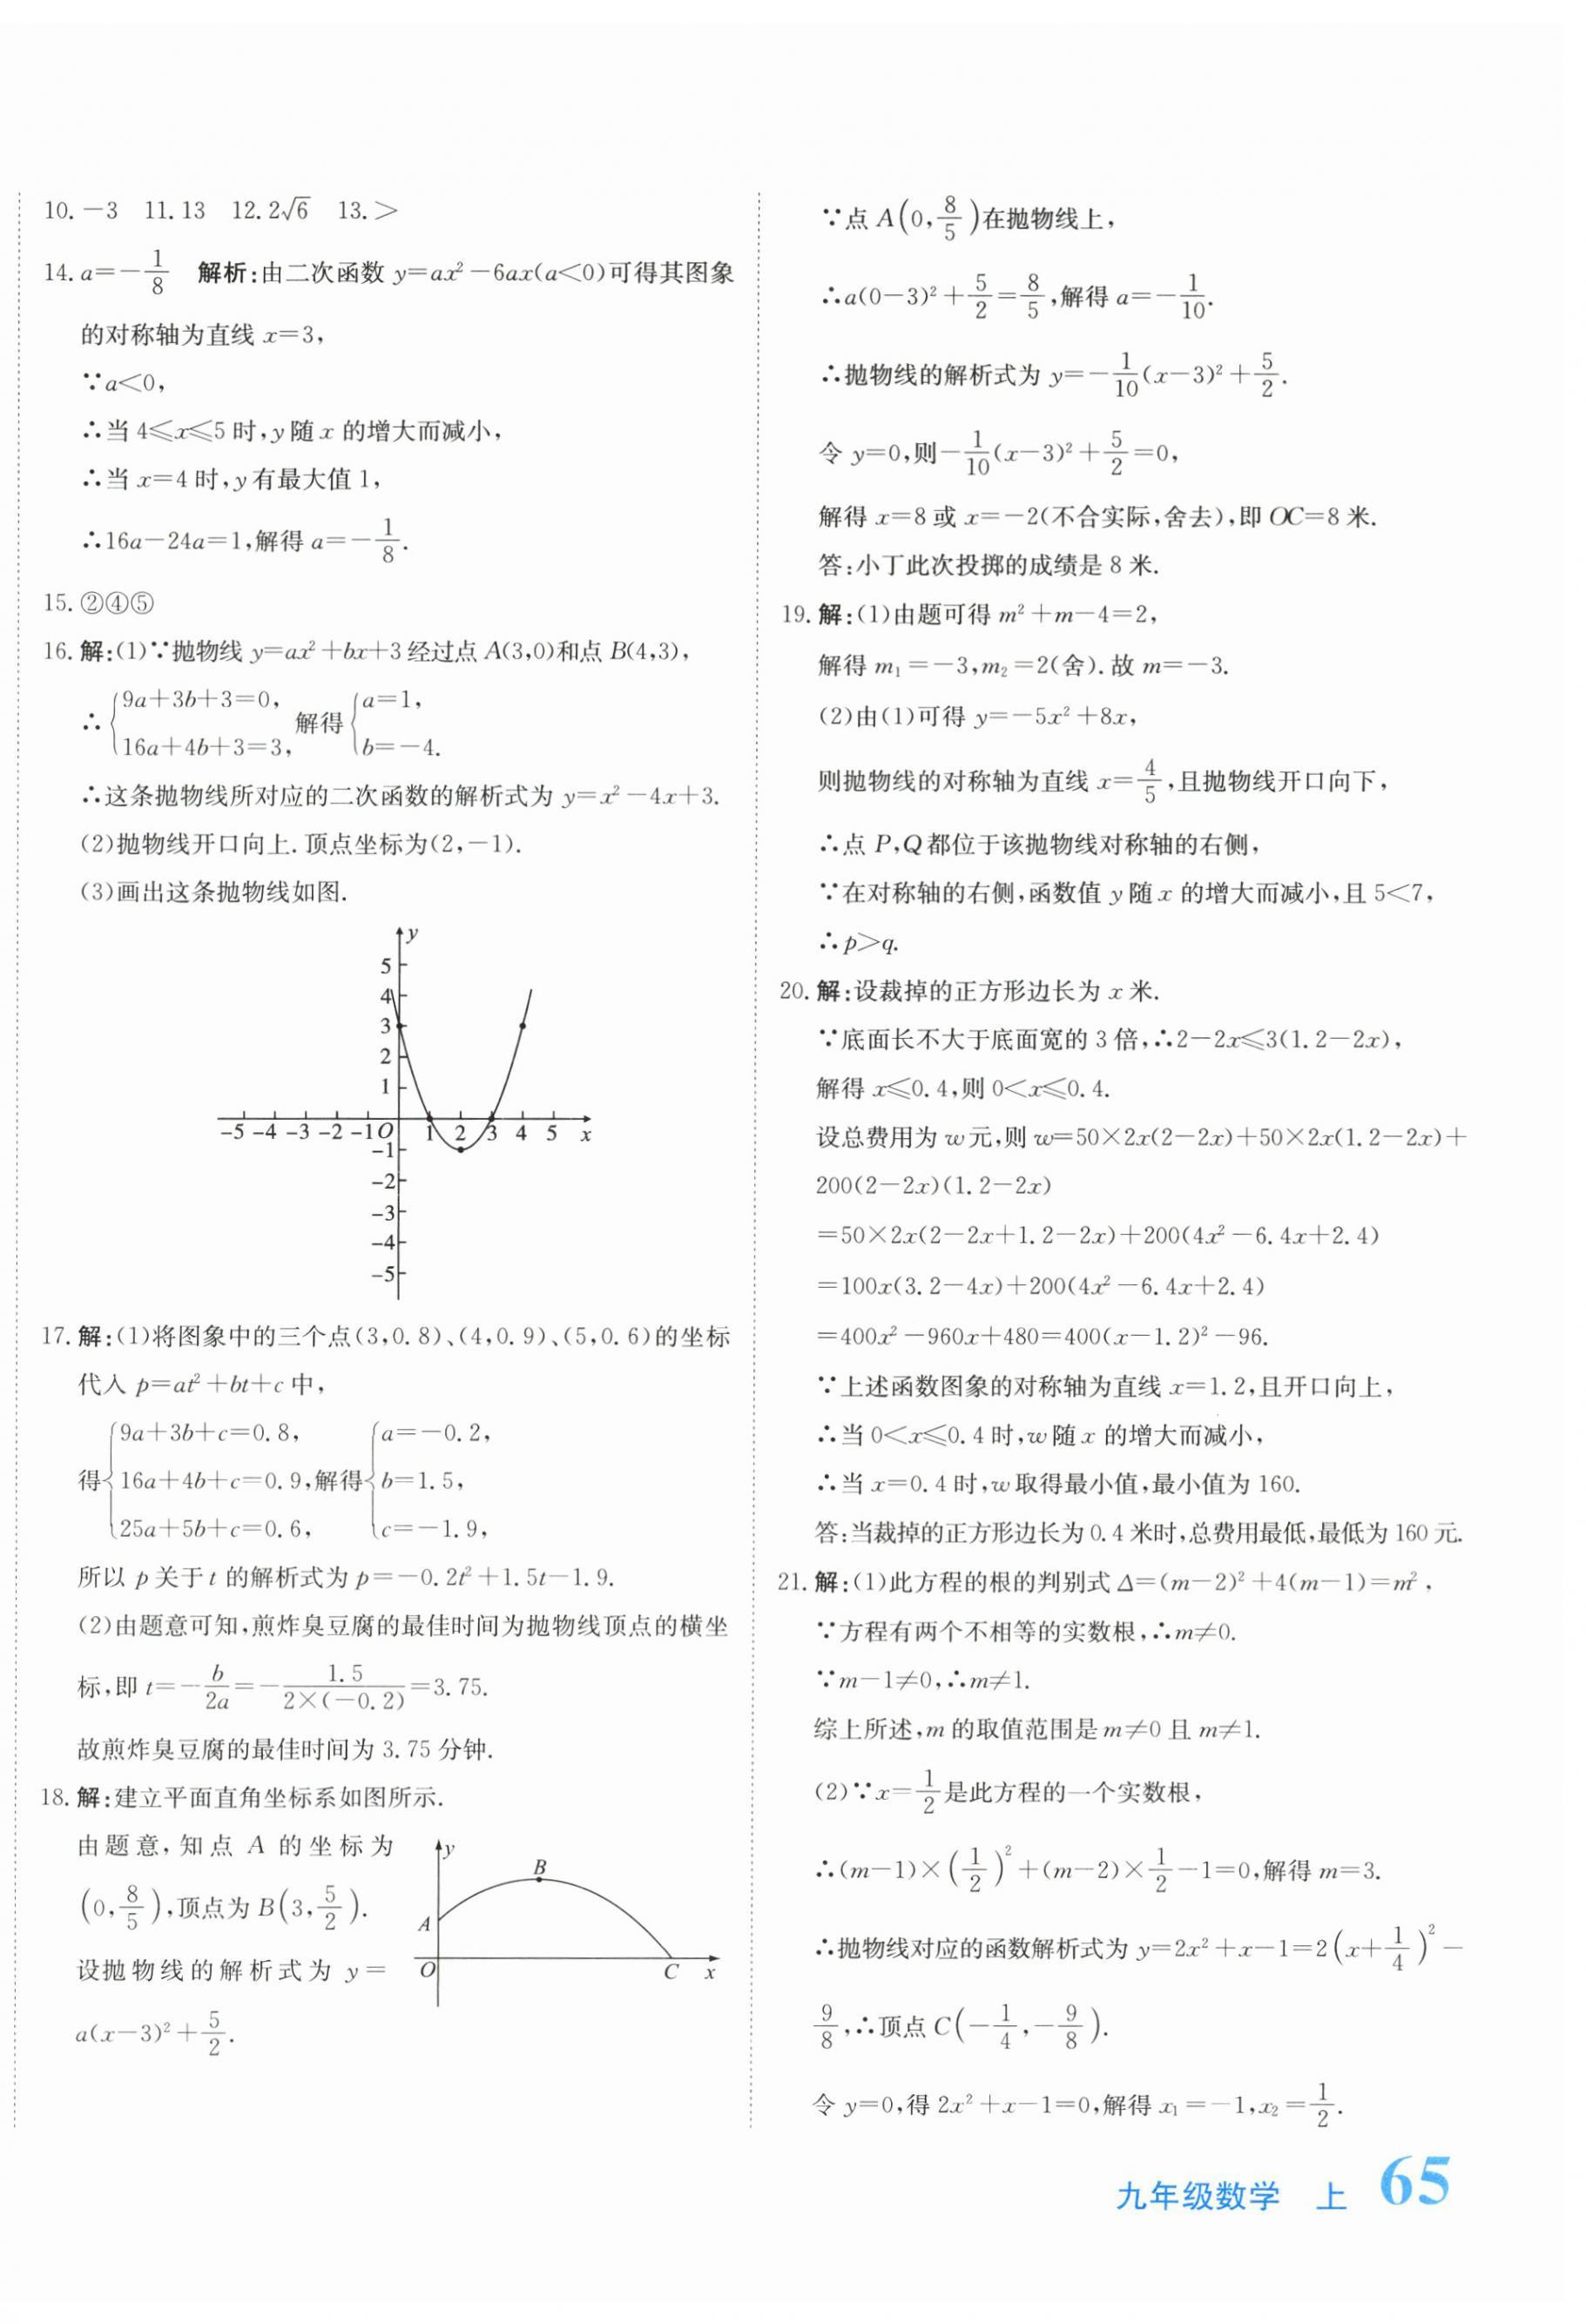 10. －3　11. 13　12. 2√6　13. ＞
14. a＝－1/8　解析:由二次函数 y＝ax²－6ax(a＜0)可得其图象
的对称轴为直线 x＝3,
∵a＜0,
∴当 4≤x≤5 时,y 随 x 的增大而减小,
∴当 x＝4 时,y 有最大值 1,
∴16a－24a＝1,解得 a＝－1/8.
15. ②④⑤
16. 解:(1)∵抛物线 y＝ax²＋bx＋3 经过点 A(3,0)和点 B(4,3),
∴{9a＋3b＋3＝0, 16a＋4b＋3＝3, 解得{a＝1, b＝－4.
∴这条抛物线所对应的二次函数的解析式为 y＝x²－4x＋3.
(2)抛物线开口向上. 顶点坐标为(2,－1).
(3)画出这条抛物线如图.
y
5
4
3
2
1
-5 -4 -3 -2 -1 O 1 2 3 4 5 x
-1
-2
-3
-4
-5
17. 解:(1)将图象中的三个点(3,0.8)、(4,0.9)、(5,0.6)的坐标
代入 p＝at²＋bt＋c 中,
得{9a＋3b＋c＝0.8, 16a＋4b＋c＝0.9, 25a＋5b＋c＝0.6, 解得{a＝－0.2, b＝1.5, c＝－1.9,
所以 p 关于 t 的解析式为 p＝－0.2t²＋1.5t－1.9.
(2)由题意可知,煎炸臭豆腐的最佳时间为抛物线顶点的横坐
标,即 t＝－b/2a＝－1.5/2×(－0.2)＝3.75.
故煎炸臭豆腐的最佳时间为 3.75 分钟.
18. 解:建立平面直角坐标系如图所示.
由题意,知点 A 的坐标为
(0,8/5),顶点为 B(3,5/2).
设抛物线的解析式为 y＝
a(x－3)²＋5/2.
y
B
A
O
C
x
∵点 A(0,8/5)在抛物线上,
∴a(0－3)²＋5/2＝8/5,解得 a＝－1/10.
∴抛物线的解析式为 y＝－1/10(x－3)²＋5/2.
令 y＝0,则－1/10(x－3)²＋5/2＝0,
解得 x＝8 或 x＝－2(不合实际,舍去),即 OC＝8 米.
答:小丁此次投掷的成绩是 8 米.
19. 解:(1)由题可得 m²＋m－4＝2,
解得 m₁＝－3,m₂＝2(舍). 故 m＝－3.
(2)由(1)可得 y＝－5x²＋8x,
则抛物线的对称轴为直线 x＝4/5,且抛物线开口向下,
∴点 P,Q 都位于该抛物线对称轴的右侧,
∵在对称轴的右侧,函数值 y 随 x 的增大而减小,且 5＜7,
∴p＞q.
20. 解:设裁掉的正方形边长为 x 米.
∵底面长不大于底面宽的 3 倍,∴2－2x≤3(1.2－2x),
解得 x≤0.4,则 0＜x≤0.4.
设总费用为 w 元,则 w＝50×2x(2－2x)＋50×2x(1.2－2x)＋
200(2－2x)(1.2－2x)
＝50×2x(2－2x＋1.2－2x)＋200(4x²－6.4x＋2.4)
＝100x(3.2－4x)＋200(4x²－6.4x＋2.4)
＝400x²－960x＋480＝400(x－1.2)²－96.
∵上述函数图象的对称轴为直线 x＝1.2,且开口向上,
∴当 0＜x≤0.4 时,w 随 x 的增大而减小,
∴当 x＝0.4 时,w 取得最小值,最小值为 160.
答:当裁掉的正方形边长为 0.4 米时,总费用最低,最低为 160 元.
21. 解:(1)此方程的根的判别式 Δ＝(m－2)²＋4(m－1)＝m²,
∵方程有两个不相等的实数根,∴m≠0.
∵m－1≠0,∴m≠1.
综上所述,m 的取值范围是 m≠0 且 m≠1.
(2)∵x＝1/2是此方程的一个实数根,
∴(m－1)×(1/2)²＋(m－2)×1/2－1＝0,解得 m＝3.
∴抛物线对应的函数解析式为 y＝2x²＋x－1＝2(x＋1/4)²－
9/8,∴顶点 C(－1/4,－9/8).
令 y＝0,得 2x²＋x－1＝0,解得 x₁＝－1,x₂＝1/2.
九年级数学　上　65